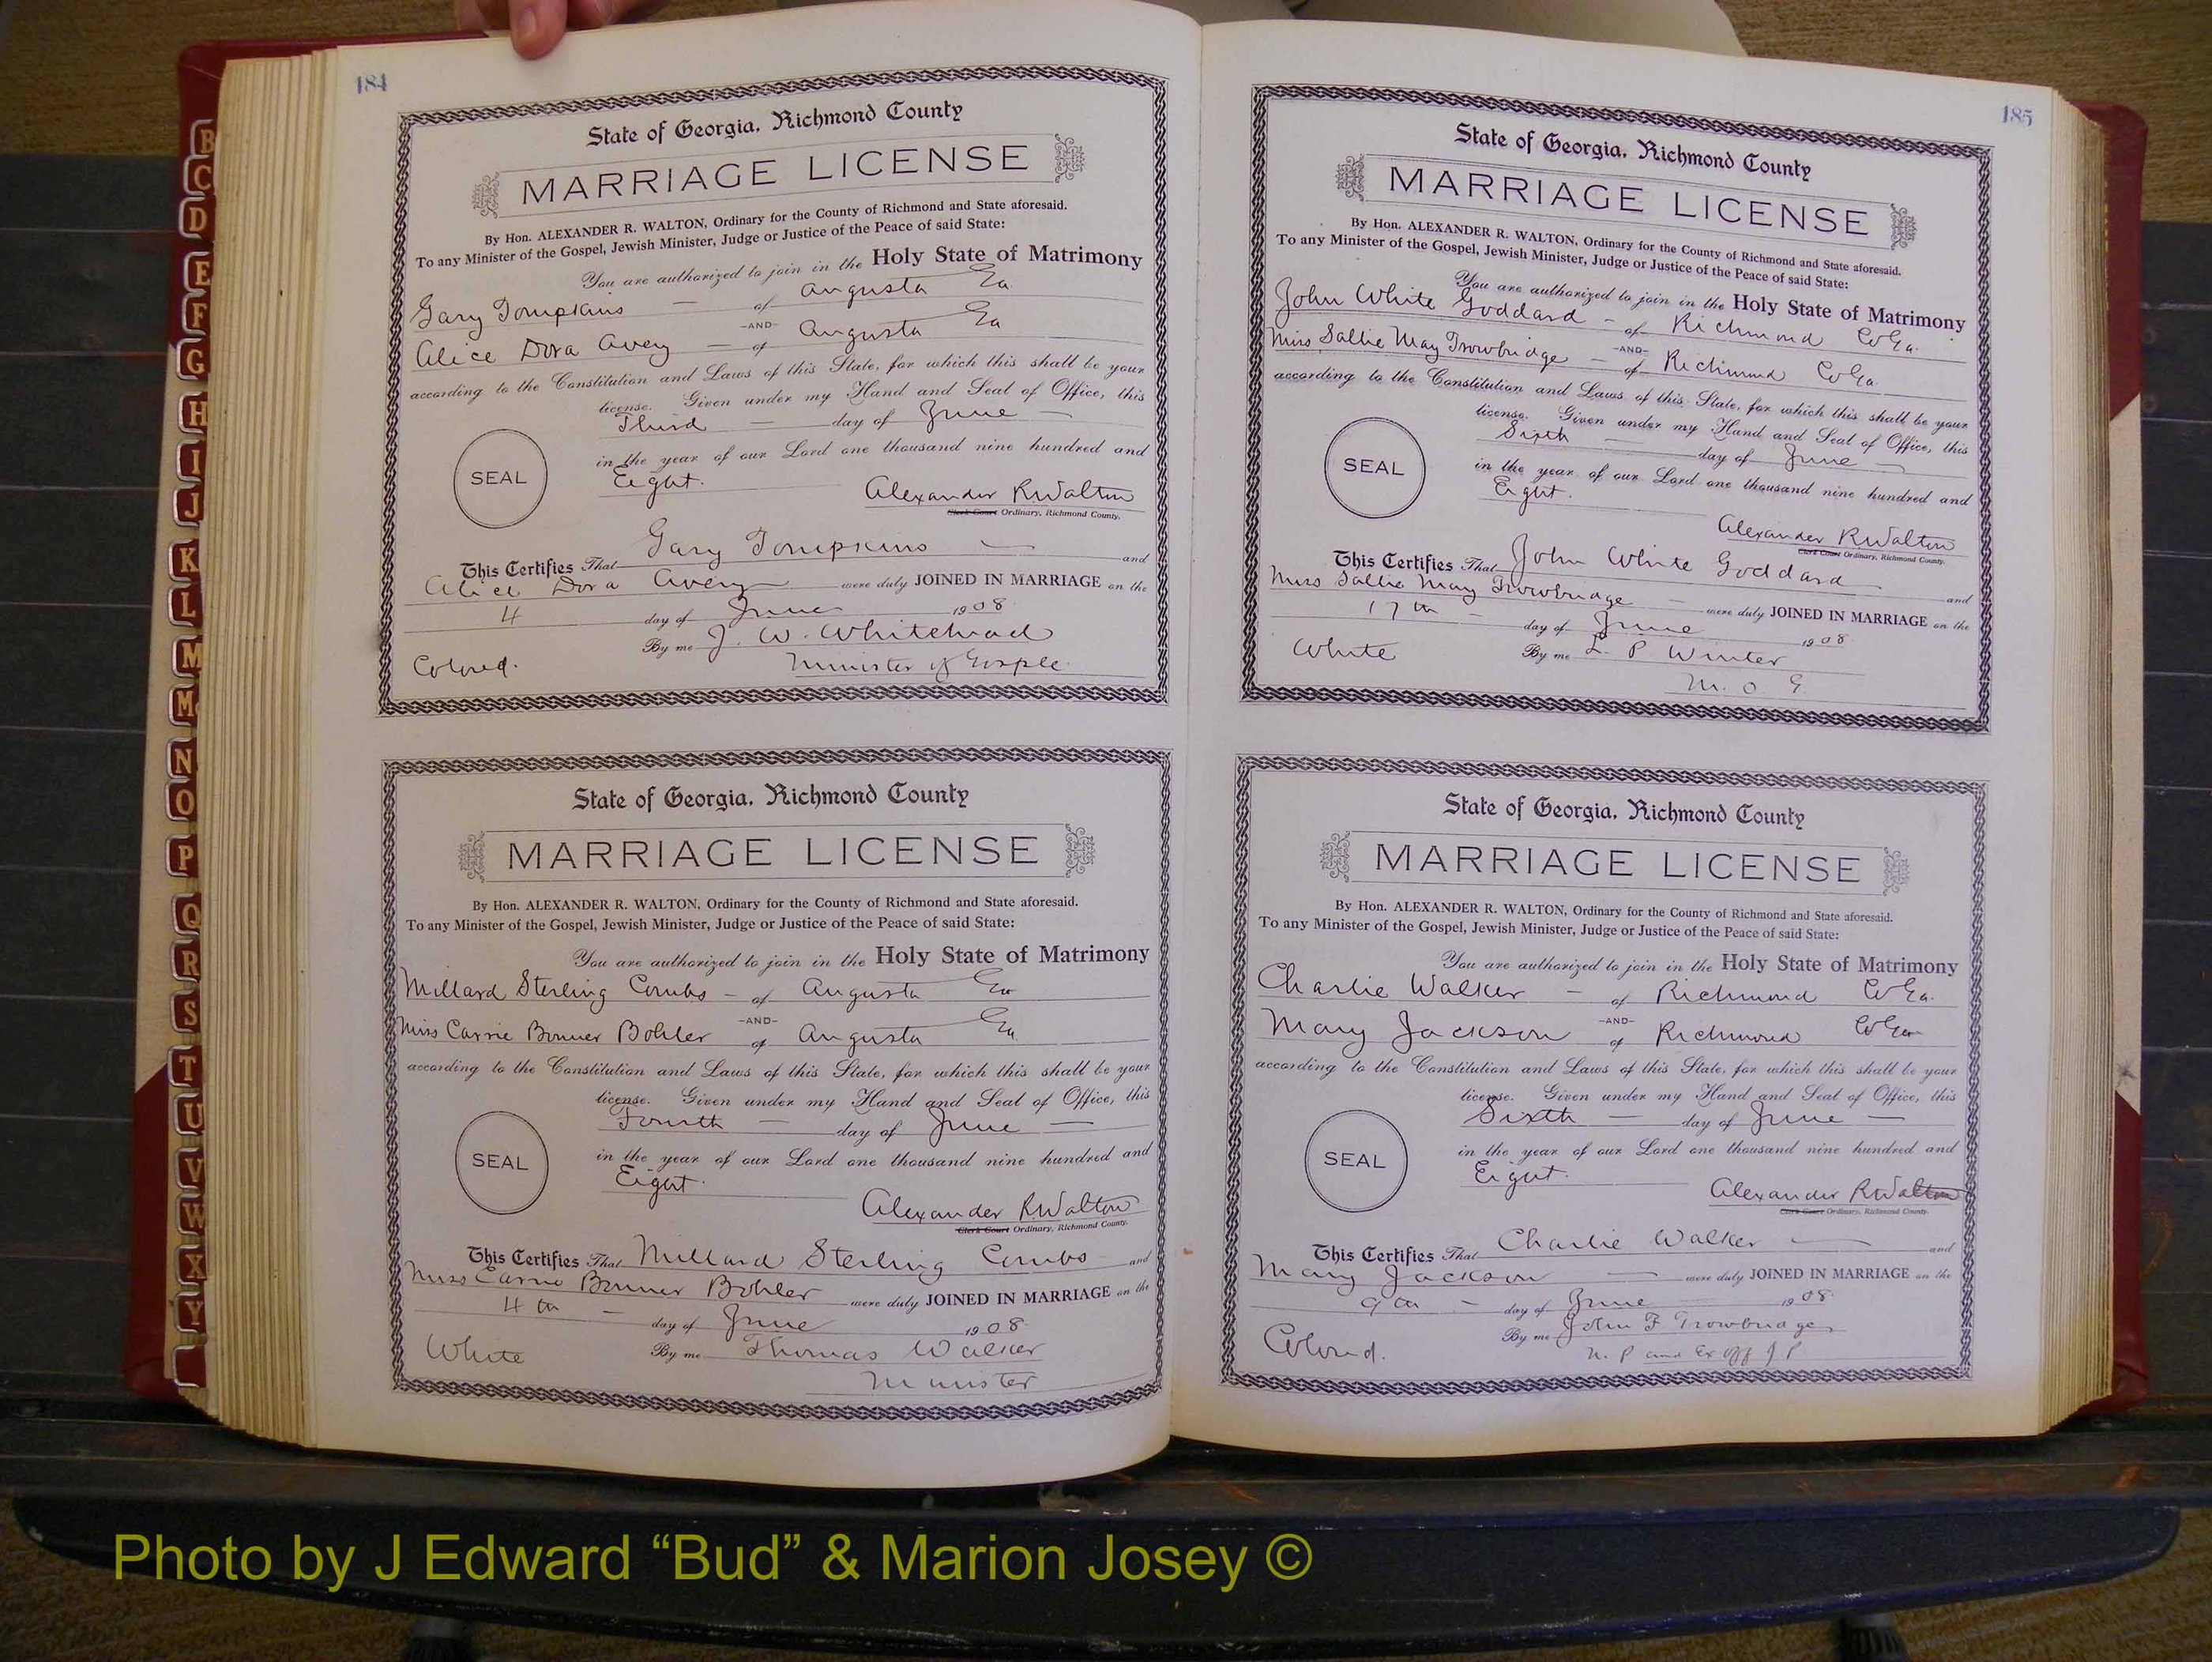 184
State of Georgia, Richmond County
MARRIAGE LICENSE
By Hon. ALEXANDER R. WALTON, Ordinary for the County of Richmond and State aforesaid.
To any Minister of the Gospel, Jewish Minister, Judge or Justice of the Peace of said State:
You are authorized to join in the Holy State of Matrimony
Gary Tompkins — of Augusta Ga
-AND-
Alice Dora Avery — of Augusta Ga
according to the Constitution and Laws of this State, for which this shall be your
license. Given under my Hand and Seal of Office, this
Third — day of June —
SEAL
in the year of our Lord one thousand nine hundred and
Eight.
Alexander R Walton
Clerk Court Ordinary, Richmond County.
This Certifies That Gary Tompkins — and
Alice Dora Avery — were duly JOINED IN MARRIAGE on the
4 day of June 1908
By me J. W. Whitehead
Colored. Minister of Gosple
State of Georgia, Richmond County
MARRIAGE LICENSE
By Hon. ALEXANDER R. WALTON, Ordinary for the County of Richmond and State aforesaid.
To any Minister of the Gospel, Jewish Minister, Judge or Justice of the Peace of said State:
You are authorized to join in the Holy State of Matrimony
Millard Sterling Combs — of Augusta Ga
-AND-
Miss Carrie Bonner Bohler of Augusta Ga
according to the Constitution and Laws of this State, for which this shall be your
license. Given under my Hand and Seal of Office, this
Fourth — day of June —
SEAL
in the year of our Lord one thousand nine hundred and
Eight.
Alexander R Walton
Clerk Court Ordinary, Richmond County.
This Certifies That Millard Sterling Combs and
Miss Carrie Bonner Bohler were duly JOINED IN MARRIAGE on the
4th — day of June 1908
White By me Thomas Walker
Minister
185
State of Georgia, Richmond County
MARRIAGE LICENSE
By Hon. ALEXANDER R. WALTON, Ordinary for the County of Richmond and State aforesaid.
To any Minister of the Gospel, Jewish Minister, Judge or Justice of the Peace of said State:
You are authorized to join in the Holy State of Matrimony
John White Goddard — of Richmond Co Ga.
-AND-
Miss Sallie May Trowbridge — of Richmond Co Ga.
according to the Constitution and Laws of this State, for which this shall be your
license. Given under my Hand and Seal of Office, this
Sixth — day of June —
SEAL
in the year of our Lord one thousand nine hundred and
Eight.
Alexander R Walton
Clerk Court Ordinary, Richmond County.
This Certifies That John White Goddard and
Miss Sallie May Trowbridge — were duly JOINED IN MARRIAGE on the
17th — day of June 1908
White By me L. P Winter
M. O. G.
State of Georgia, Richmond County
MARRIAGE LICENSE
By Hon. ALEXANDER R. WALTON, Ordinary for the County of Richmond and State aforesaid.
To any Minister of the Gospel, Jewish Minister, Judge or Justice of the Peace of said State:
You are authorized to join in the Holy State of Matrimony
Charlie Walker — of Richmond Co Ga.
-AND-
Mary Jackson of Richmond Co Ga
according to the Constitution and Laws of this State, for which this shall be your
license. Given under my Hand and Seal of Office, this
Sixth — day of June —
SEAL
in the year of our Lord one thousand nine hundred and
Eight.
Alexander R Walton
Clerk Court Ordinary, Richmond County.
This Certifies That Charlie Walker — and
Mary Jackson — were duly JOINED IN MARRIAGE on the
9th — day of June 1908
By me John F Trowbridge
Colored. N. P and Ex Off J P
B
C
D
E
F
G
H
I
J
K
L
M
Mc
N
O
P
Q
R
S
T
U
V
W
X
Y
Photo by J Edward “Bud” & Marion Josey ©